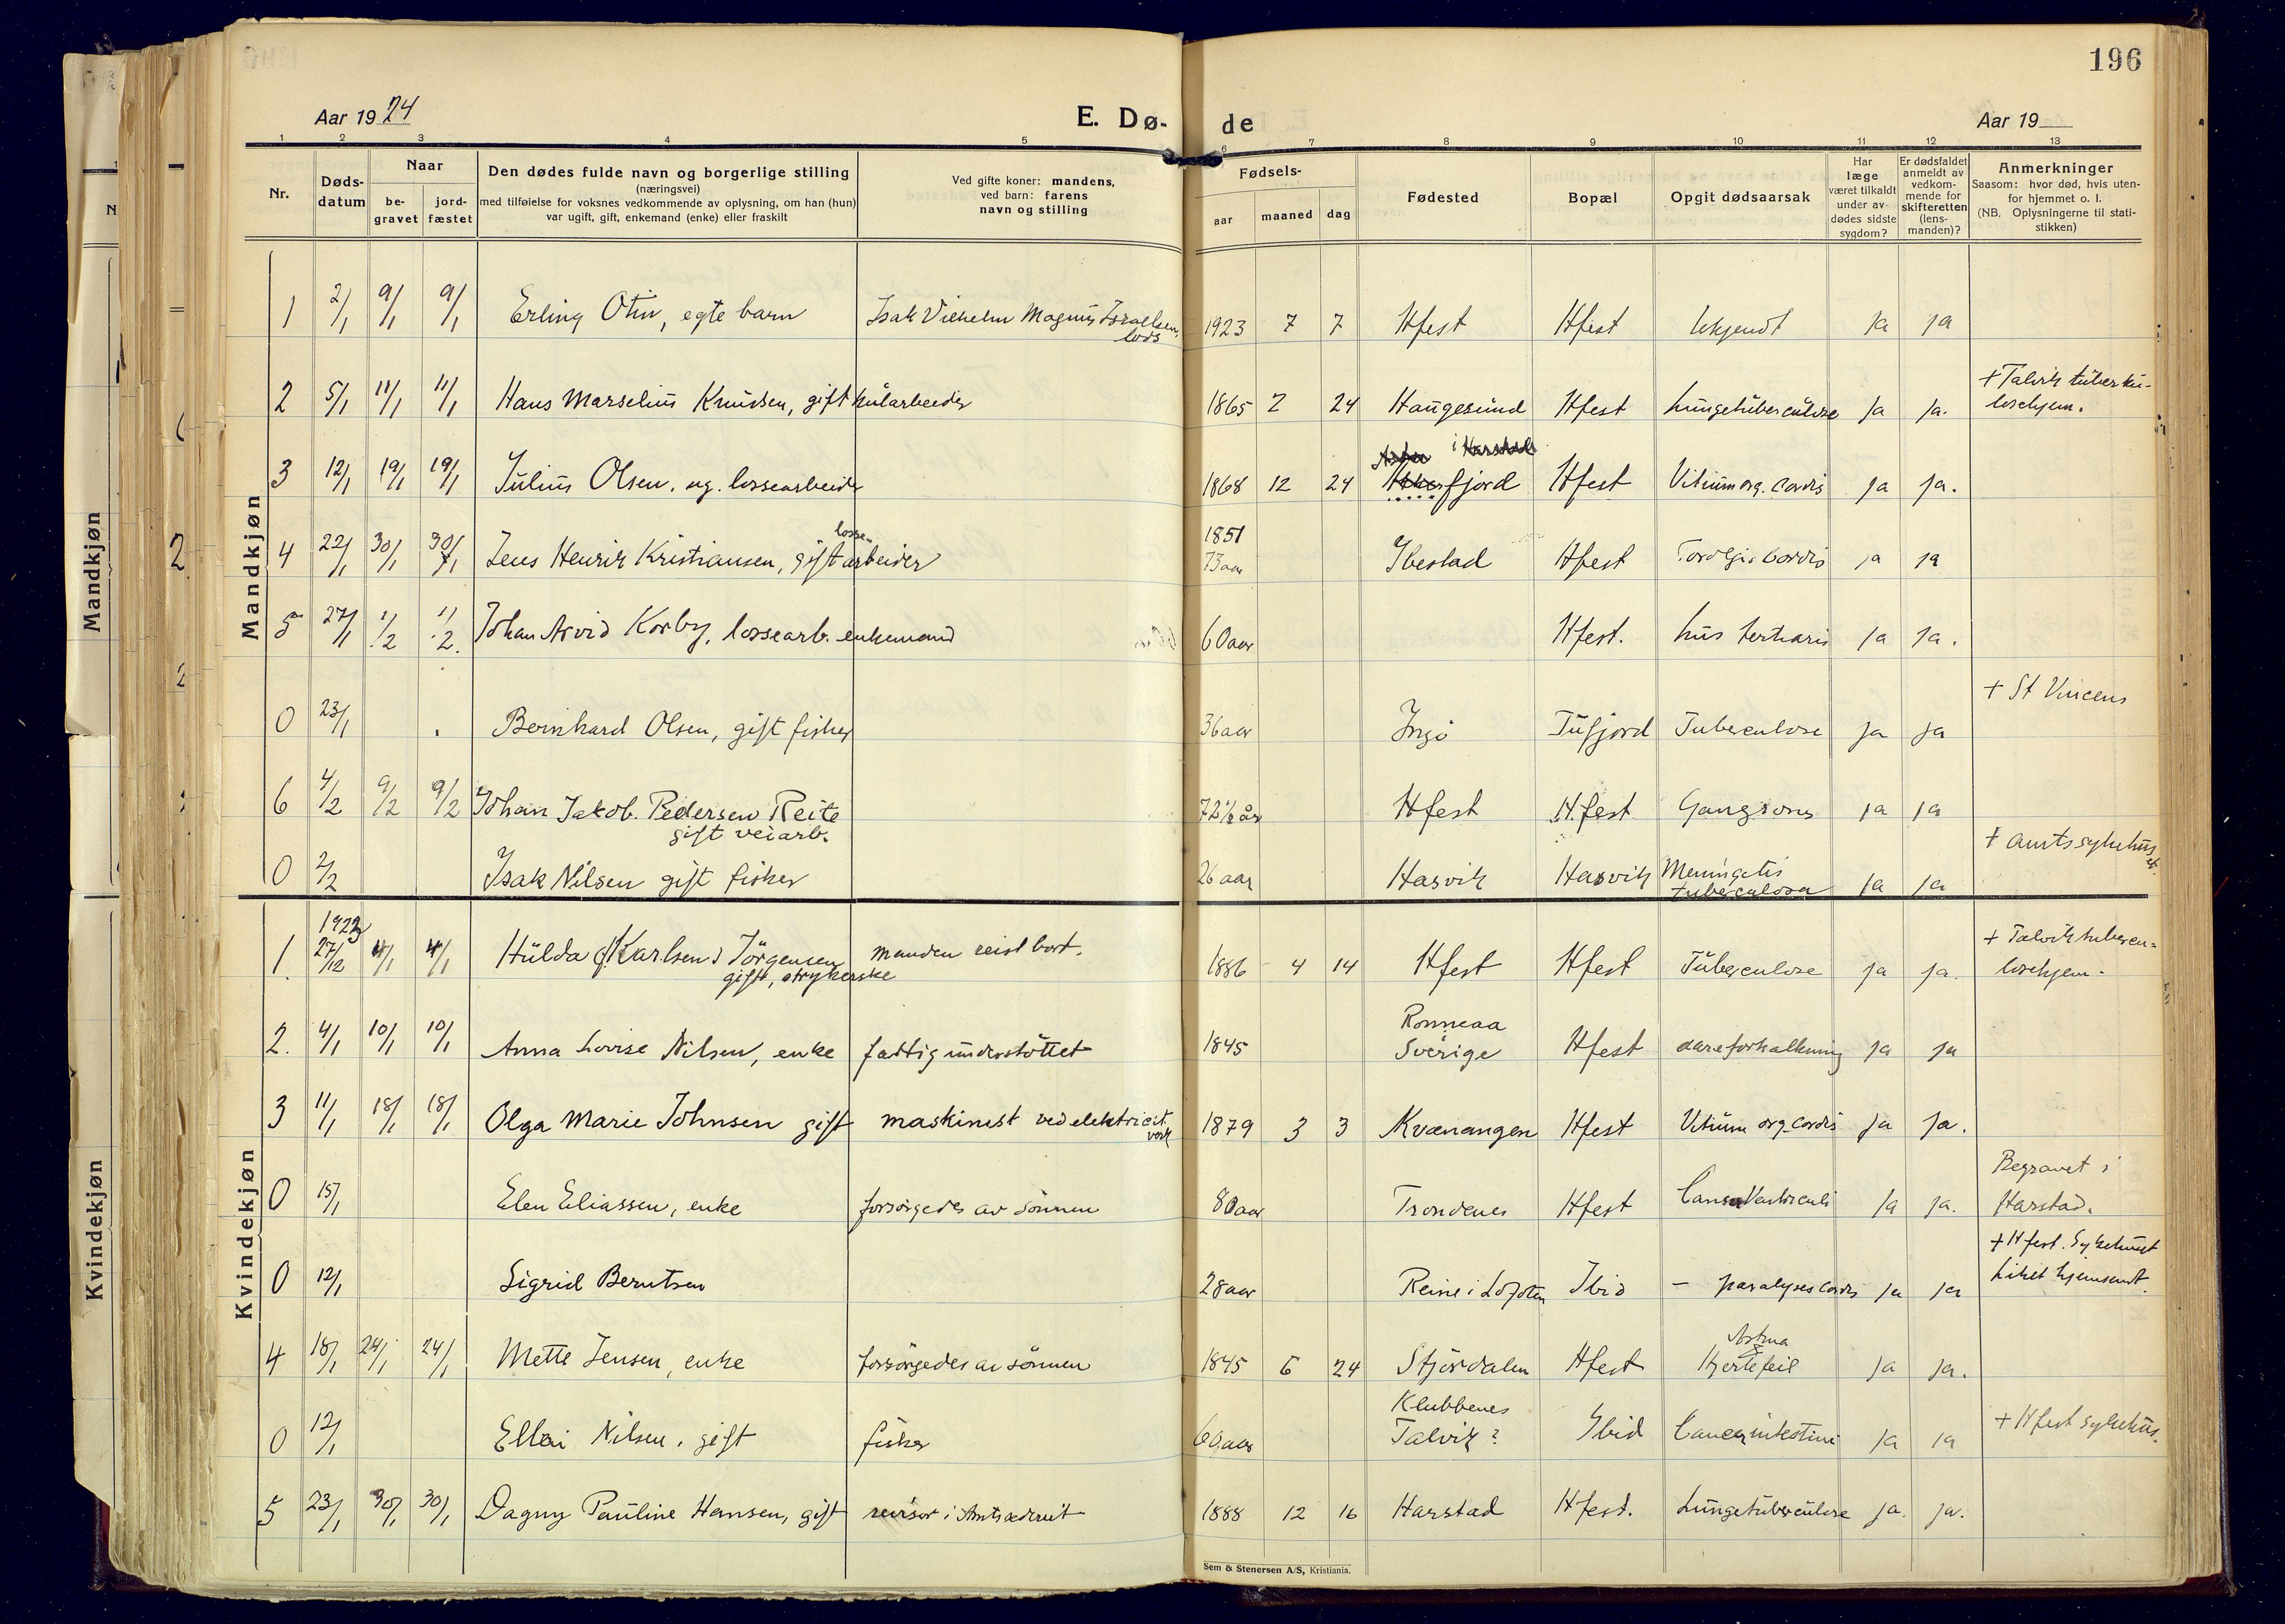 196
Aar 1924
E. Dø-
de
Aar 19
1 2 3 4 5 6 7 8 9 10 11 12 13
Nr.
Døds-
datum
Naar
be-
gravet
jord-
fæstet
Den dødes fulde navn og borgerlige stilling
(næringsvei)
med tilføielse for voksnes vedkommende av oplysning, om han (hun)
var ugift, gift, enkemand (enke) eller fraskilt
Ved gifte koner: mandens,
ved barn: farens
navn og stilling
Fødsels-
aar maaned dag
Fødested
Bopæl
Opgit dødsaarsak
Har
læge
været tilkaldt
under av-
dødes sidste
sygdom?
Er dødsfaldet
anmeldt av
vedkom-
mende for
skifteretten
(lens-
manden)?
Anmerkninger
Saasom: hvor død, hvis uten-
for hjemmet o. l.
(NB. Oplysningerne til stati-
stikken)
Mandkjøn
1 2/1 9/1 9/1 Erling Otin, egte barn Isak Vilhelm Magnus Israelsen, 1923 7 7 Hfest Hfest Ukjendt ja ja
lods
+ Talvik tuberku-
2 5/1 11/1 11/1 Hans Marselius Knudsen, gift kularbeider 1865 2 24 Haugesund Hfest Lungetuberculose ja ja. losehjem.
i Harstad
3 12/1 19/1 19/1 Julius Olsen, ug. lossearbeider 1868 12 24 fjord Hfest Vitium org. Cordis ja ja.
losse- 1851
4 22/1 30/1 30/1 Jens Henrik Kristiansen, gift arbeider 73 aar Ibestad Hfest Cordis ja ja
5 27/1 1/2 1/2 Johan Arvid Korby, lossearb. enkemand 60 aar Hfest. Lues tertiaris ja ja.
+ St Vincens
0 23/1 Bernhard Olsen, gift fisker 36 aar Ingö Tufjord Tuberculose ja ja
6 4/2 9/2 9/2 Johan Jakob. Pedersen Reite 72 1/2 år Hfest H.fest Gangræna ja ja
gift veiarb.
+ amtssykehus
0 2/2 Isak Nilsen gift fisker 26 aar Hasvik Hasvik Meningitis ja ja
tuberculosa
Kvindekjøn
1923 + Talvik tubercu-
1. 27/12 4/1 4/1 Hulda Karlsen Jörgensen manden reist bort. 1886 4 14 Hfest Hfest Tuberculose ja ja. losehjem.
gift, strykerske
Ronneaa
2. 4/1 10/1 10/1 Anna Lovise Nilsen, enke fattigunderstöttet 1845 Sverige Hfest aareforkalkning ja ja
3 11/1 18/1 18/1 Olga Marie Johnsen gift maskinist ved elektricit. 1879 3 3 Kvænangen Hfest Vitium org. Cordis ja ja.
verk
Begravet i
0 15/1 Elen Eliassen, enke forsörgedes av sönnen 80 aar Trondenes Hfest Cancer Ventriculi ja ja. Harstad.
+ Hfest. Sykehus
0 12/1 Sigrid Berntsen 28 aar Reine i Lofoten Ibid - paralyses Cordis ja ja Liket hjemsendt.
Astma
4 18/1 24/1 24/1 Mette Jensen, enke forsörgedes av sönnen 1845 6 24 Stjördalen Hfest Hjertefeil ja ja.
Klubbenes
0 12/1 Ellen Nilsen, gift fisker 60 aar Talvik? Ibid Cancer intestini ja ja + Hfest sykehus.
5 23/1 30/1 30/1 Dagny Pauline Hansen, gift revisor i 1888 12 16 Harstad Hfest. Lungetuberculose ja. ja.
Sem & Stenersen A/S, Kristiania.
Mandkjøn
Kvindekjøn